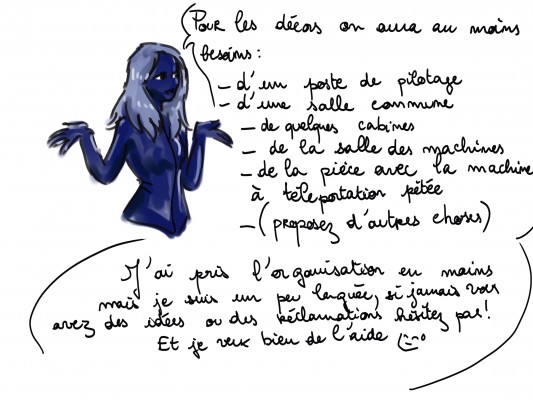 Pour les décors on aura au moins
besoins :
– d'un poste de pilotage
– d'une salle commune
– de quelques cabines
– de la salle des machines
– de la pièce avec la machine
à téléportation pétée
– (proposez d'autres choses)
J'ai pris l'organisation en mains
mais je suis un peu larguée, si jamais vous
avez des idées ou des réclamations hésitez pas!
Et je veux bien de l'aide